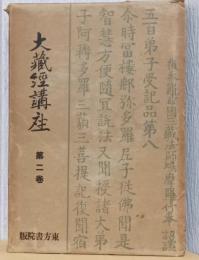 大藏經講座
第二卷
東方書院版
後秦龜茲國三藏法師鳩摩羅什奉 詔譯
五百弟子受記品第八
爾時富樓那彌多羅尼子從佛聞是
智慧方便隨宜說法又聞授諸大弟
子阿耨多羅三藐三菩提記復聞宿